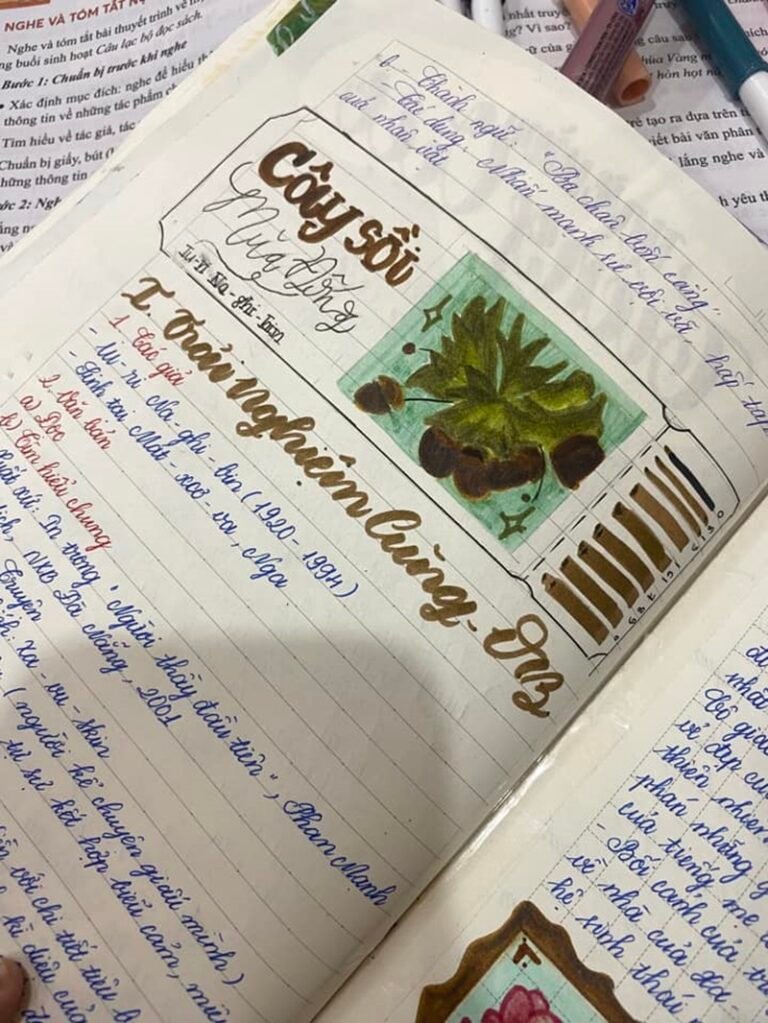 NGHE VÀ TÓM TẮT
Nghe và tóm tắt bài thuyết trình về
ng buổi sinh hoạt Câu lạc bộ đọc sách.
Bước 1: Chuẩn bị trước khi nghe
• Xác định mục đích: nghe để hiểu
thông tin về những tác phẩm
Tìm hiểu về tác giả, tác
Chuẩn bị giấy, bút
những thông tin
ớc 2: Ngh
nhất truy
ng? Vì sao?
ữ của g
câu sau
hùa Vàng
hòn họt
rẻ tạo ra dựa trên
viết bài văn phân
lắng nghe và
h yêu th
b. - Thành ngữ: "Ba chân bốn cẳng"
- Tác dụng: Nhấn mạnh sự vội vã, hấp tấp
của nhân vật
Cây sồi
Mùa Đông
Iu-ri Na-ghi-bin
I. Trải Nghiệm Cùng VB
1. Tác giả
- Iu-ri Na-ghi-bin (1920-1994)
- Sinh tại Mát-xcơ-va, Nga
2. Văn bản
a) Đọc
b) Tìm hiểu chung
Xuất xứ: In trong "Người thầy đầu tiên", Phan Mạnh
dịch, NXB Đà Nẵng, 2001
Truyện
Xa-vu-skin
(người kể chuyện giấu mình)
tự sự kết hợp biểu cảm, miê
với chi tiết tiêu b
kì diệu của
nhất
Cô giáo
vẻ đẹp củ
thiên nhiên
phán những
của tiếng mẹ
- Bối cảnh của
về nhà của Xa-
hệ sinh thái